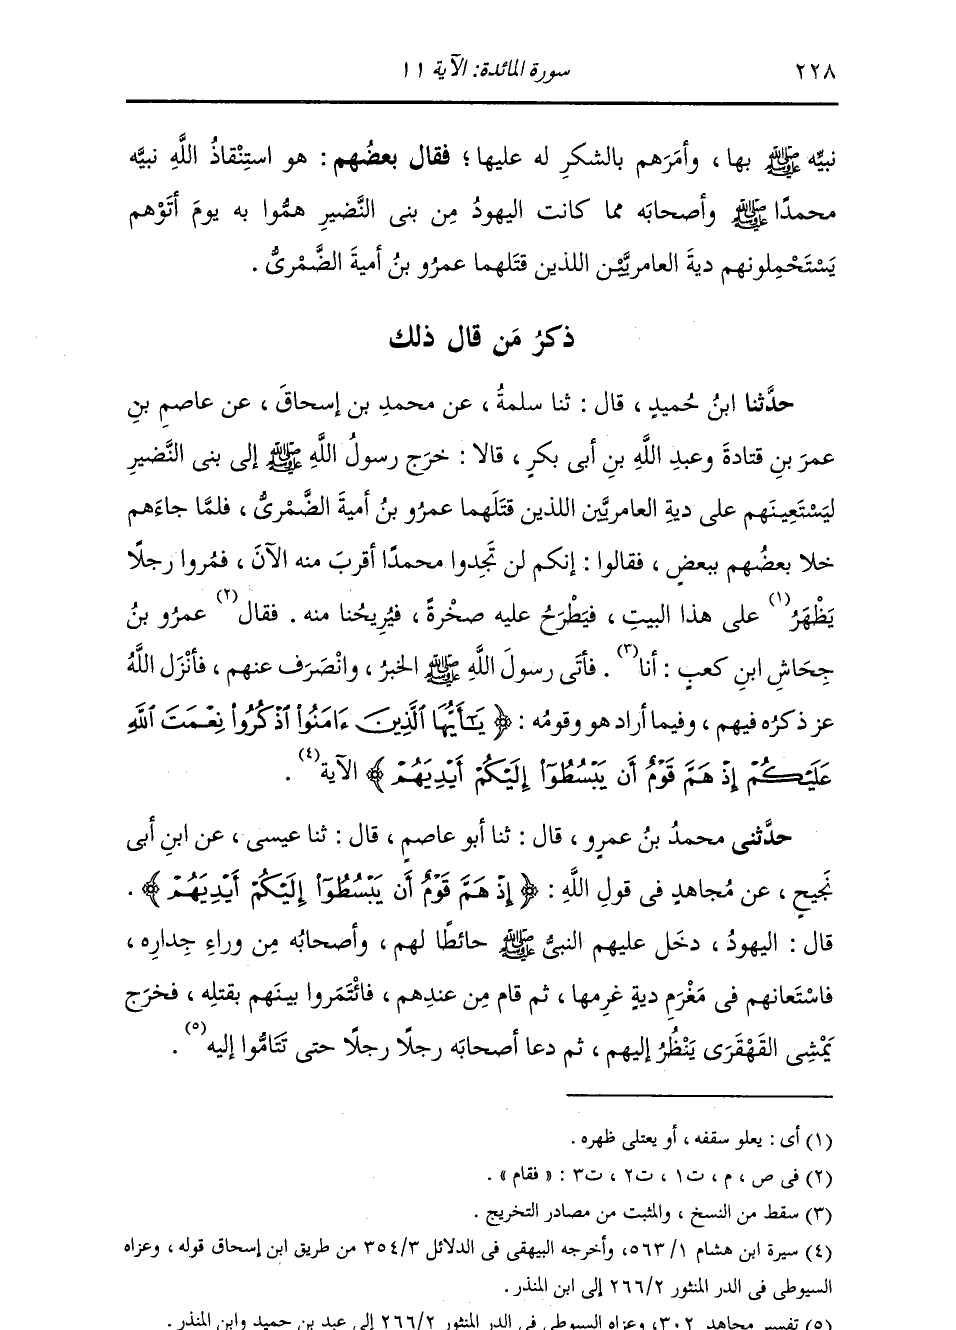 ٢٢٨ سورة المائدة: الآية ١١
نبيِّه ﷺ بها ، وأمَرَهم بالشكرِ له عليها ؛ فقال بعضُهم : هو استِنْقاذُ اللَّهِ نبيَّه
محمدًا ﷺ وأصحابَه مما كانت اليهودُ مِن بنى النَّضيرِ همُّوا به يومَ أتَوْهم
يَسْتَحْمِلونهم ديةَ العامريَّيْن اللذين قتَلهما عمرُو بنُ أميةَ الضَّمْرِىُّ .
ذكرُ مَن قال ذلك
حدَّثنا ابنُ حُميدٍ ، قال : ثنا سلمةُ ، عن محمدِ بنِ إسحاقَ ، عن عاصمِ بنِ
عمرَ بنِ قتادةَ وعبدِ اللَّهِ بنِ أبى بكرٍ ، قالا : خرَج رسولُ اللَّهِ ﷺ إلى بنى النَّضيرِ
ليَسْتَعِينَهم على ديةِ العامريَّين اللذين قتَلَهما عمرُو بنُ أميةَ الضَّمْرِىُّ ، فلمَّا جاءَهم
خلا بعضُهم ببعضٍ ، فقالوا : إنكم لن تَجِدوا محمدًا أقربَ منه الآنَ ، فمُروا رجلًا
يَظْهَرُ(١) على هذا البيتِ ، فيَطْرَحُ عليه صخْرةً ، فيُرِيحُنا منه . فقال(٢) عمرُو بنُ
جِحَاشِ ابنِ كعبٍ : أنا(٣) . فأتَى رسولَ اللَّهِ ﷺ الخبرُ ، وانْصَرَف عنهم ، فأنْزَل اللَّهُ
عز ذكرُه فيهم ، وفيما أراد هو وقومُه : ﴿ يَـٰٓأَيُّهَا ٱلَّذِينَ ءَامَنُوا۟ ٱذْكُرُوا۟ نِعْمَتَ ٱللَّهِ
عَلَيْكُمْ إِذْ هَمَّ قَوْمٌ أَن يَبْسُطُوٓا۟ إِلَيْكُمْ أَيْدِيَهُمْ ﴾ الآية(٤) .
حدَّثنى محمدُ بنُ عمرٍو ، قال : ثنا أبو عاصمٍ ، قال : ثنا عيسى ، عن ابنِ أبى
نَجيحٍ ، عن مُجاهدٍ فى قولِ اللَّهِ : ﴿ إِذْ هَمَّ قَوْمٌ أَن يَبْسُطُوٓا۟ إِلَيْكُمْ أَيْدِيَهُمْ ﴾ .
قال : اليهودُ ، دخَل عليهم النبىُّ ﷺ حائطًا لهم ، وأصحابُه مِن وراءِ جِدارِه ،
فاسْتَعانهم فى مَغْرَمِ ديةٍ غرِمها ، ثم قام مِن عندِهم ، فائْتَمَروا بينَهم بقتلِه ، فخرَج
يَمْشِى القَهْقَرَى يَنْظُرُ إليهم ، ثم دعا أصحابَه رجلًا رجلًا حتى تَتَامُّوا إليه(٥) .
(١) أى : يعلو سقفه ، أو يعتلى ظهره .
(٢) فى ص ، م ، ت١ ، ت٢ ، ت٣ : « فقام » .
(٣) سقط من النسخ ، والمثبت من مصادر التخريج .
(٤) سيرة ابن هشام ١/ ٥٦٣، وأخرجه البيهقى فى الدلائل ٣/ ٣٥٤ من طريق ابن إسحاق قوله ، وعزاه
السيوطى فى الدر المنثور ٢/ ٢٦٦ إلى ابن المنذر .
(٥) تفسير مجاهد ٣٠٢، وعزاه السيوطى فى الدر المنثور ٢/ ٢٦٦ إلى عبد بن حميد وابن المنذر .